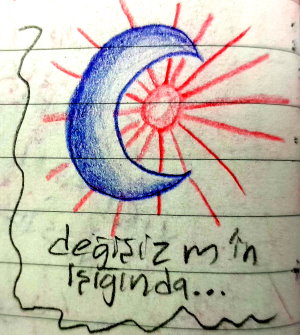 değişizmin
ışığında...